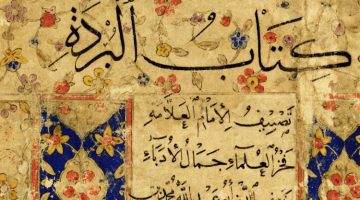 كِتَابُ الْبُرْدَةِ
تَصْنِيفُ الْإِمَامِ الْعَلَّامَةِ
فَخْرُ الْعُلَمَاءِ جَمَالُ الْأُدَبَاءِ